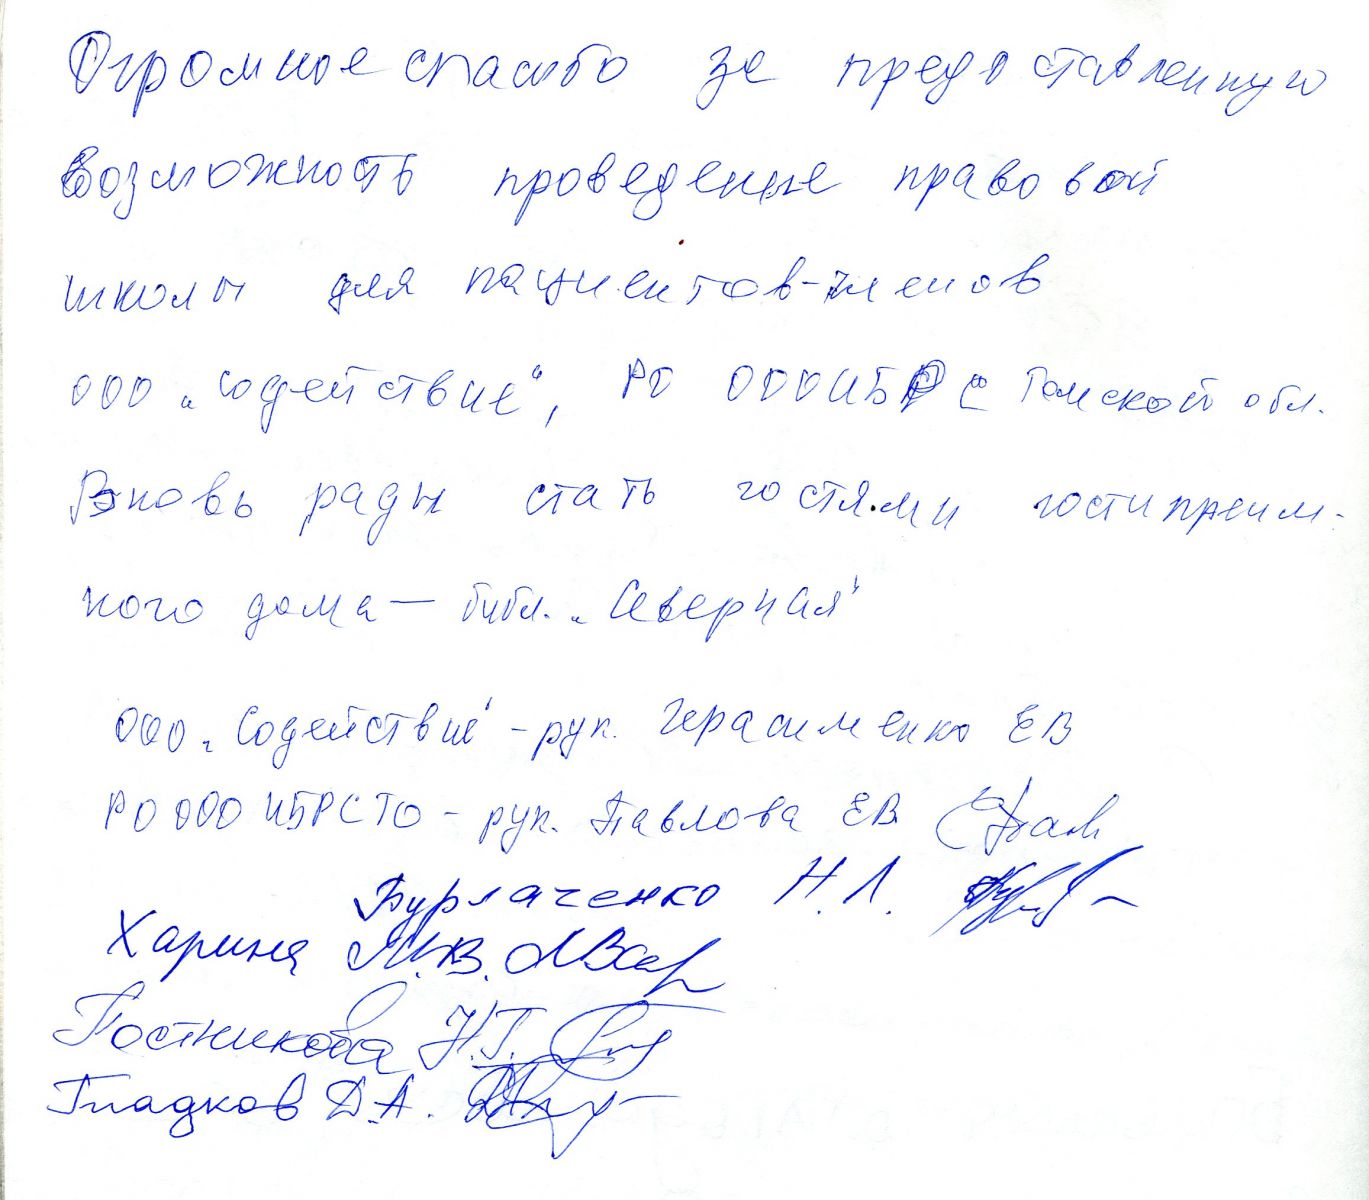 Огромное спасибо за предоставленную
возможность проведение правовой
школы для пациентов-членов
ООО „Содействие", РО ОООИБРС Томской обл.
Вновь рады стать гостями гостиприим-
ного дома — библ. „Северная"
ООО „Содействие" - рук. Герасименко ЕВ
РО ОООИБРСТО - рук. Павлова ЕВ
Бурлаченко Н.Л.
Харина М.В.
Постникова Н.Г.
Гладков Д.А.